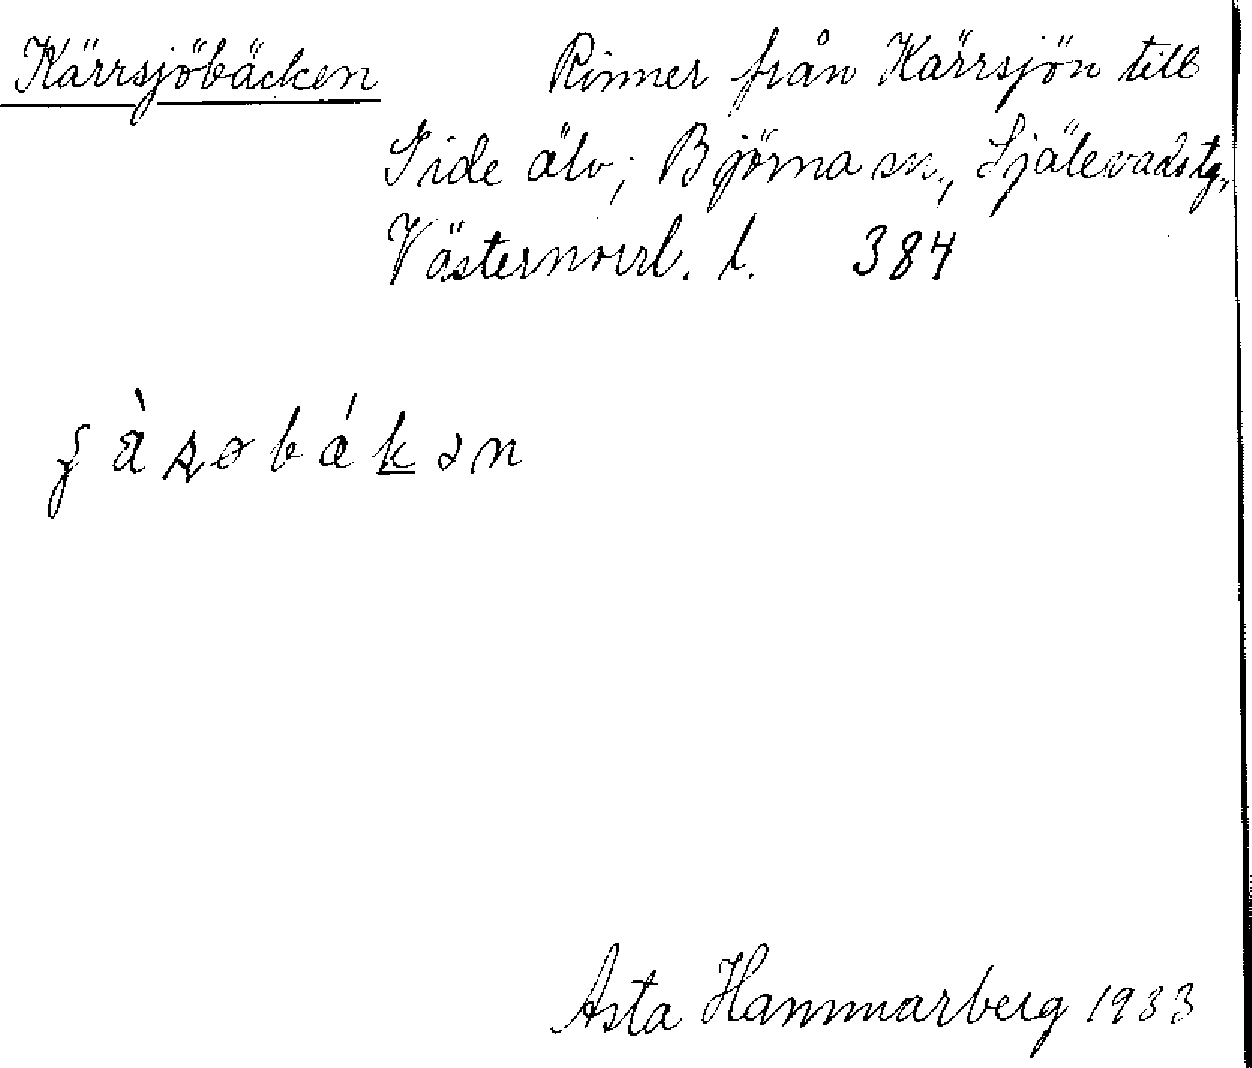 Kärrsjöbäcken Rinner från Kärrsjön till
Gide älv; Björna sn, Själevadstg,
Västernorrl. l. 384
Asta Hammarberg 1933